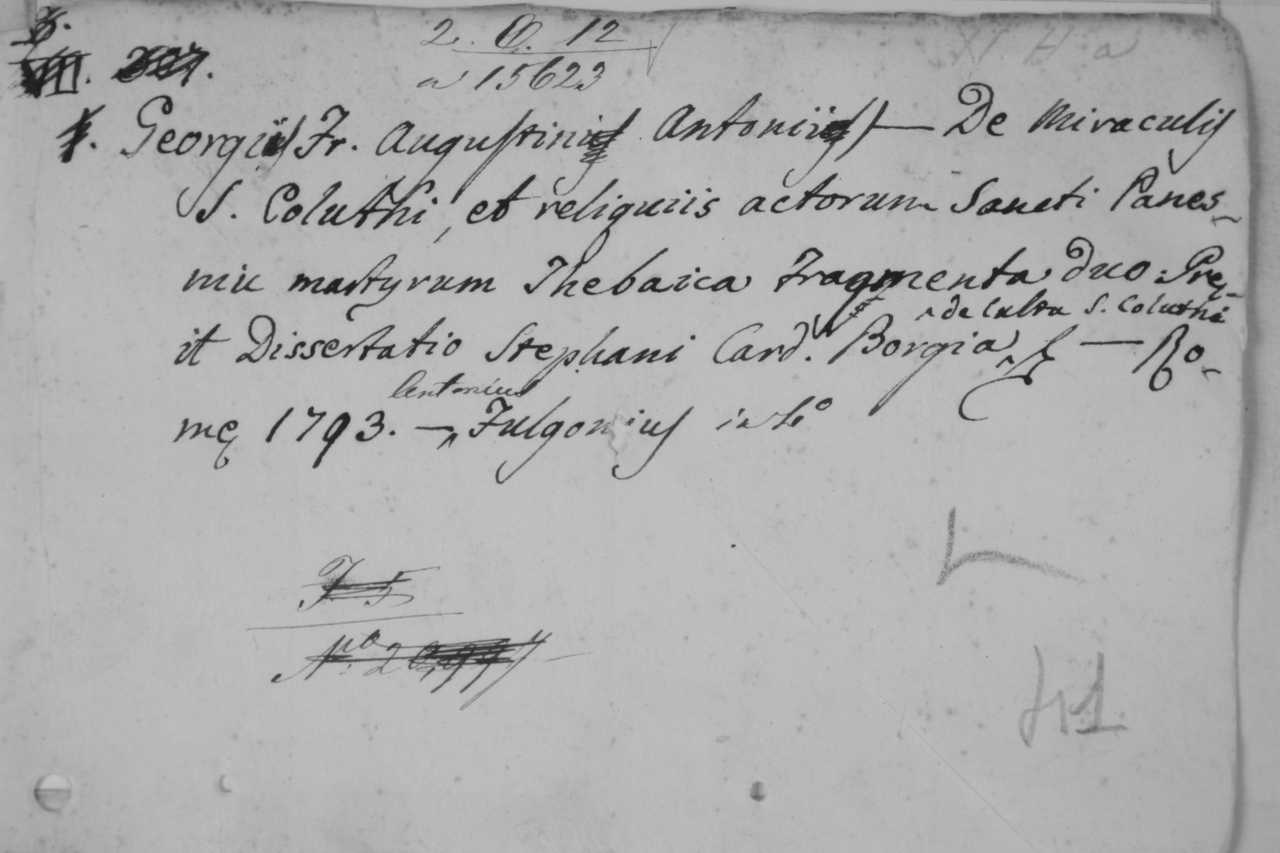 2. O. 12
a 15623
XI H a
Georgii Fr. Augustini Antonii — De Miraculis
S. Coluthi, et reliquiis actorum Sancti Panes-
niu martyrum Thebaica Fragmenta duo. Pre-
it Dissertatio Stephani Card. Borgia, de Cultu S. Coluthi — Ro-
mę 1793. — Antonius Fulgonius in 4º
F 5
Nº 2